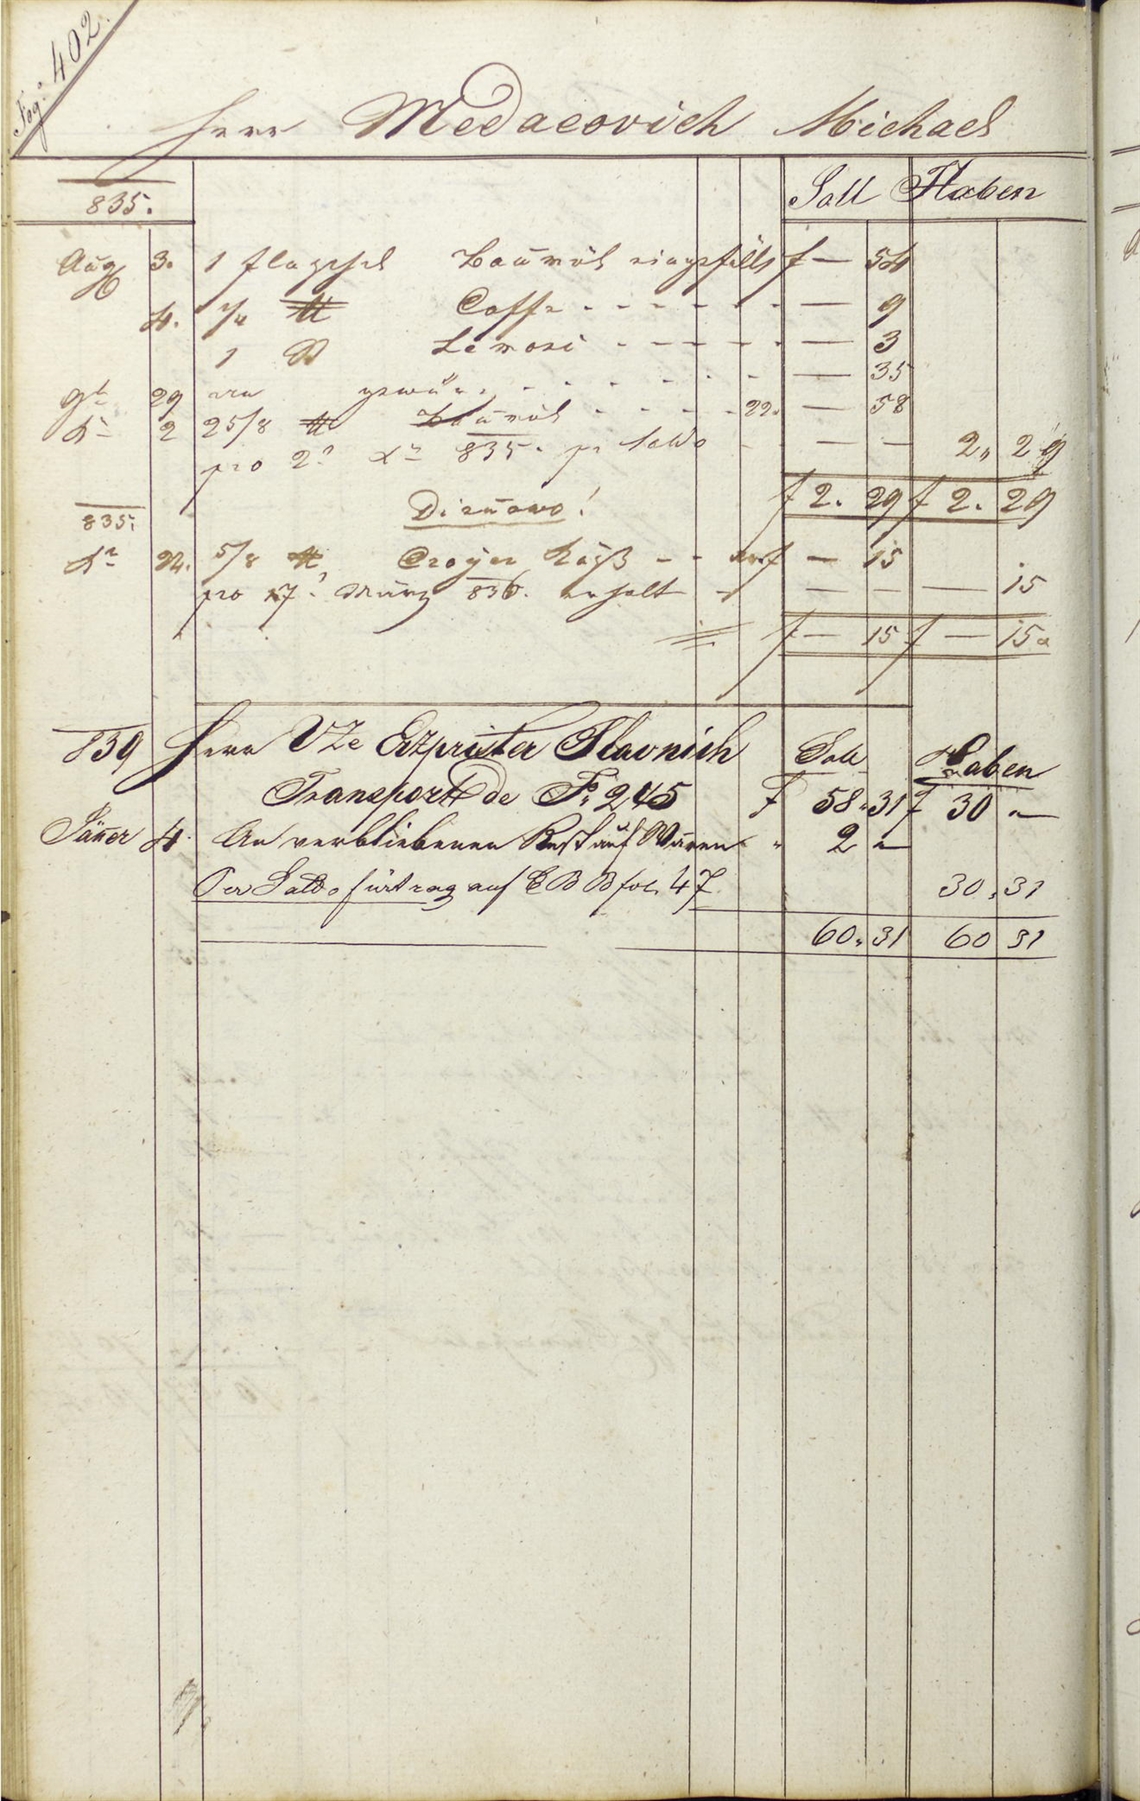 Fog: 402.
Herr Medacovich Michael
835. Soll Haben
Aug 3. 1 flaschel Baumöl eingefüllt f — 54
4. 1/4 ℔ Caffe - - - - - — 9
1 Lemoni - - - - - — 3
29 gewürz - - - - - - — 35
2 2 5/8 ℔ Baumöl - - - - 22. — 58
pro 2? Xr 835. pr Saldo - — — 2,, 29
f 2. 29 f 2. 29
835. Di nuovo!
Xr 22. 5/8 ℔ Croyer Käß - - f — 15
pro 17? März 836. erhalt — — — 15
f — 15 f — 15
839 Herr Vze Erzpriester Slavnich Soll Haben
Transport de F: 245 f 58,, 31 f 30 „—
Jäner 4. An verbliebenen Rest auf Waaren „ 2 „—
Per Saldo fürtrag auf C B B fol. 47. 30,, 31
60,, 31 60 31